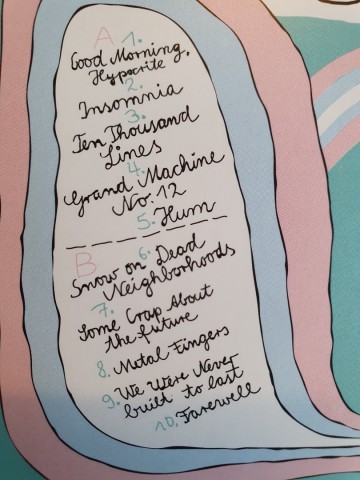 A 1.
Good Morning,
Hypocrite
2.
Insomnia
3.
Ten Thousand
Lines
4.
Grand Machine
No. 12
5. Hum
B 6.
Snow on Dead
Neighborhoods
7.
Some Crap About
the future
8. Metal Fingers
9. We Were Never
built to last
10. Farewell